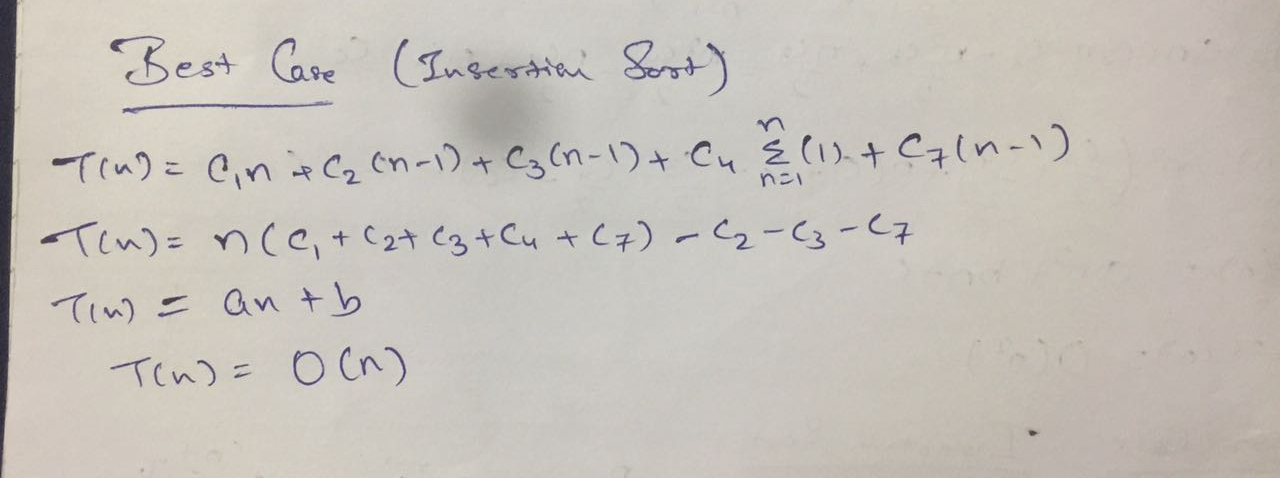 Best Case (Insertion Sort)
T(n) = C₁n + C₂(n-1) + C₃(n-1) + C₄ Σₙ₌₁ⁿ (1) + C₇(n-1)
T(n) = n(C₁ + C₂ + C₃ + C₄ + C₇) - C₂ - C₃ - C₇
T(n) = an + b
T(n) = O(n)